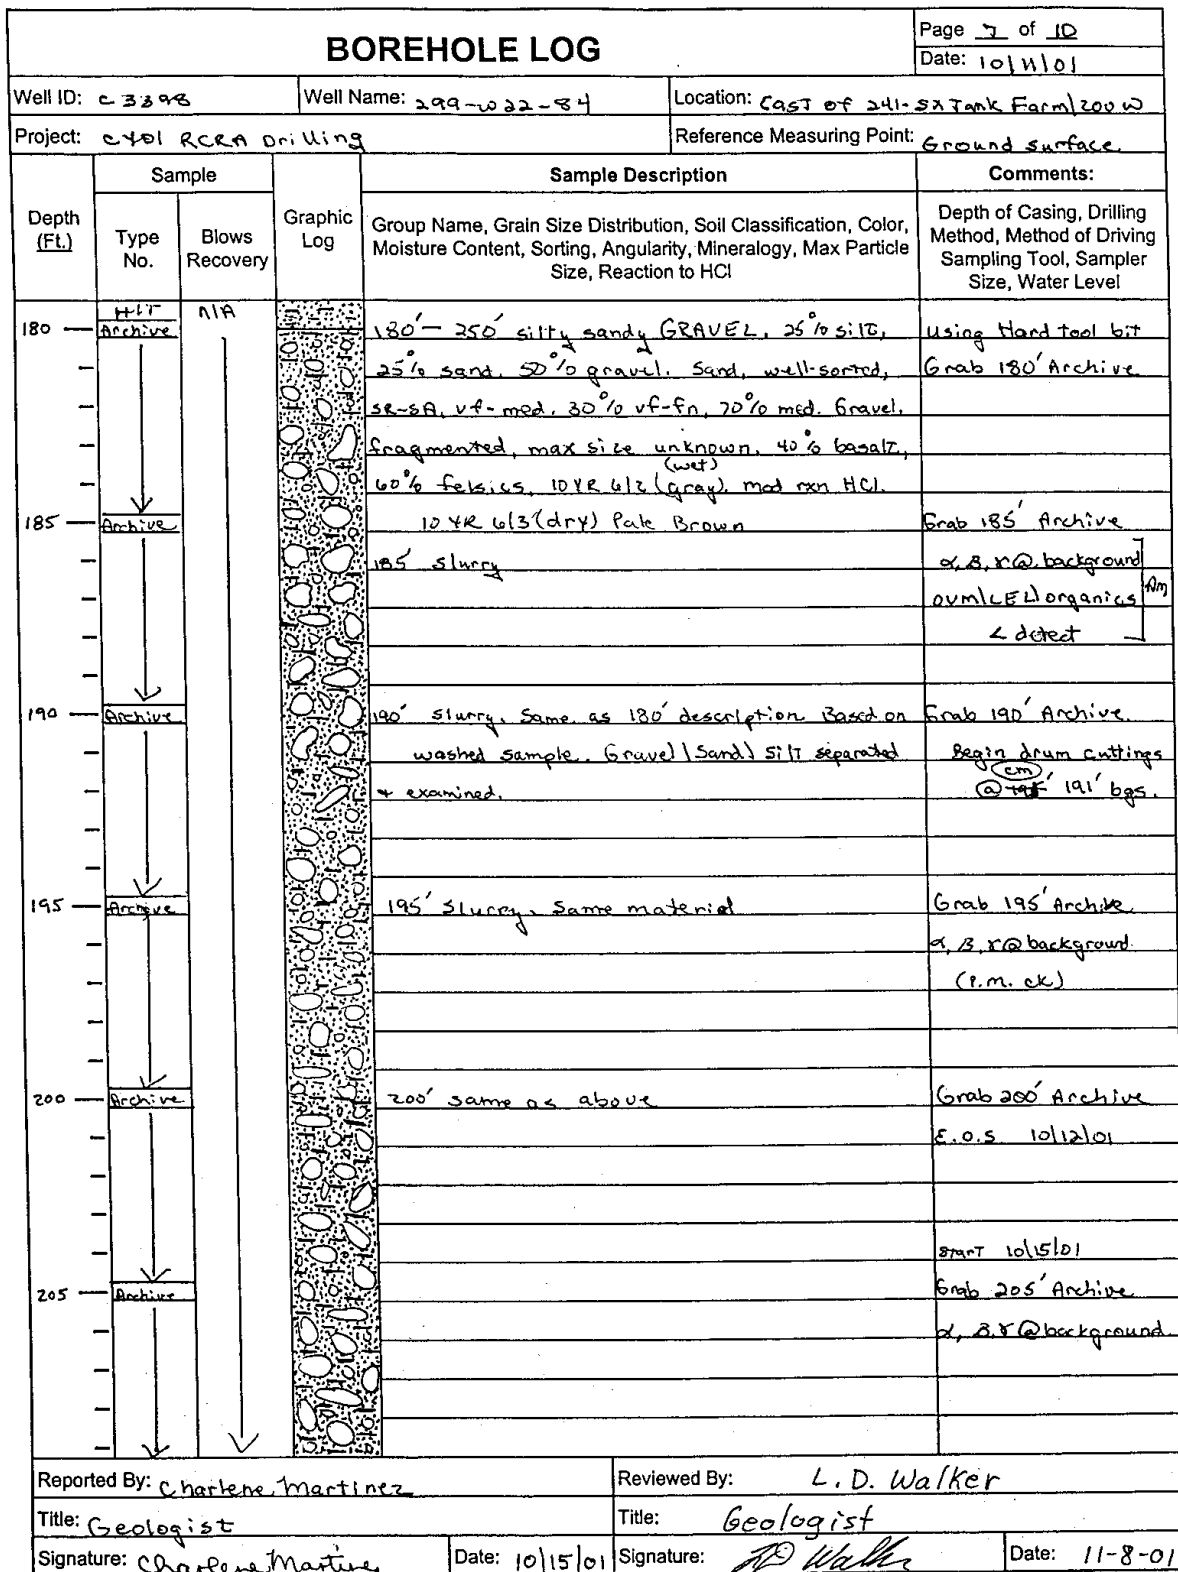 BOREHOLE LOG
Page 7 of 10
Date: 10/11/01
Well ID: C3398
Well Name: 299-W22-84
Location: East of 241-SX Tank Farm/200W
Project: CY01 RCRA Drilling
Reference Measuring Point: Ground surface
Depth (Ft.)
Sample
Type No.
Blows Recovery
Graphic Log
Sample Description
Group Name, Grain Size Distribution, Soil Classification, Color,
Moisture Content, Sorting, Angularity, Mineralogy, Max Particle
Size, Reaction to HCl
Comments:
Depth of Casing, Drilling
Method, Method of Driving
Sampling Tool, Sampler
Size, Water Level
HIT N/A
180 Archive 180'- 250' silty sandy GRAVEL, 25% silt, Using Hard tool bit
25% sand, 50% gravel. Sand, well-sorted, Grab 180' Archive
SR-SA, vf-med. 30% vf-fn, 70% med. Gravel,
fragmented, max size unknown. 40% basalt,
(wet)
60% felsics, 10YR 6/2 (gray), mod rxn HCl.
185 Archive 10 YR 6/3 (dry) Pale Brown Grab 185' Archive
185' slurry α, β, γ @ background
OVM/LEL/organics Am
< detect
190 Archive 190' slurry, same as 180' description Based on Grab 190' Archive
washed sample. Gravel/Sand/Silt separated Begin drum cuttings
cm
+ examined. @ 191' bgs.
195 Archive 195' slurry, Same material Grab 195' Archive
α, β, γ @ background
(P.m. ck)
200 Archive 200' same as above Grab 200' Archive
E.O.S. 10/12/01
Start 10/15/01
205 Archive Grab 205' Archive
α, β, γ @ background
Reported By: Charlene Martinez
Reviewed By: L. D. Walker
Title: Geologist
Title: Geologist
Signature: Charlene Martinez
Date: 10/15/01
Signature: LD Walker
Date: 11-8-01